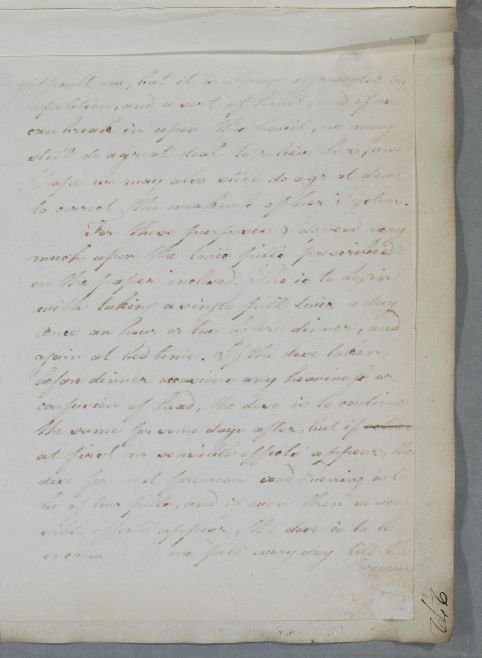 difficult one, but it is always aggravated by
repetition, and a sort of habit, and if we
can break in upon this habit, we may
still do a great deal to relieve her, and
I hope we may also still do a great deal
to correct the weakness of her System.
For these purposes I depend very
much upon the pills prescribed
on the paper inclosed. She is to begin
with taking a single pill twice a day
once an hour or two before dinner, and
again at bed time. If the dose taken
before dinner occasions any heaviness or
confusion of head, the dose is to continue
the same for some days after, but if
at first no sensible effects appear, the
dose for next forenoon and evening is to
be of two pills, and if even then no sen
sible effects appear, the dose is to be
encreased one pill every day till the
246